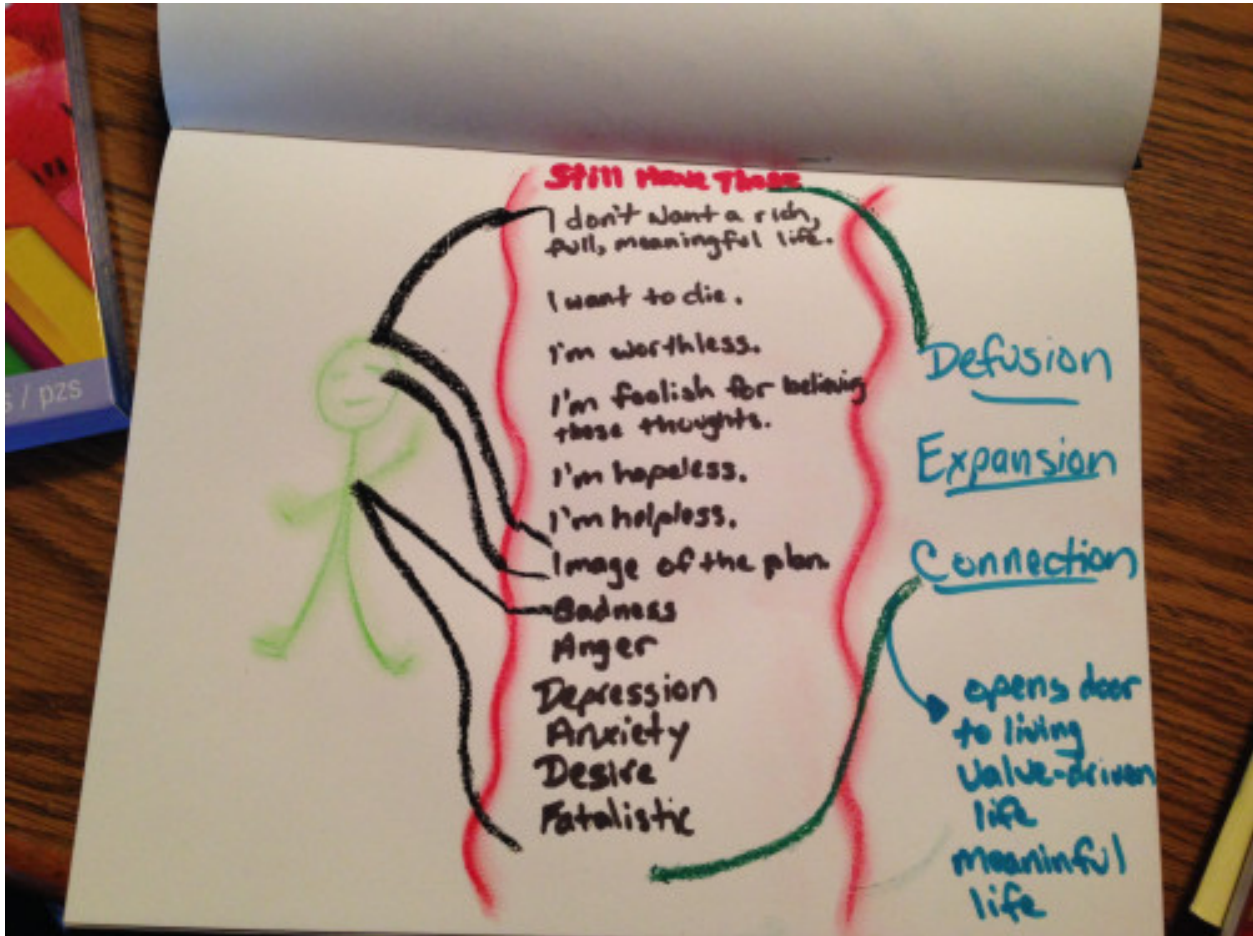 Still Have These
I don't want a rich,
full, meaningful life.
I want to die.
I'm worthless.
I'm foolish for believing
these thoughts.
I'm hopeless.
I'm helpless.
Image of the plan.
Sadness
Anger
Depression
Anxiety
Desire
Fatalistic
Defusion
Expansion
Connection
opens door
to living
value-driven
life
meaninful
life
s / pzs